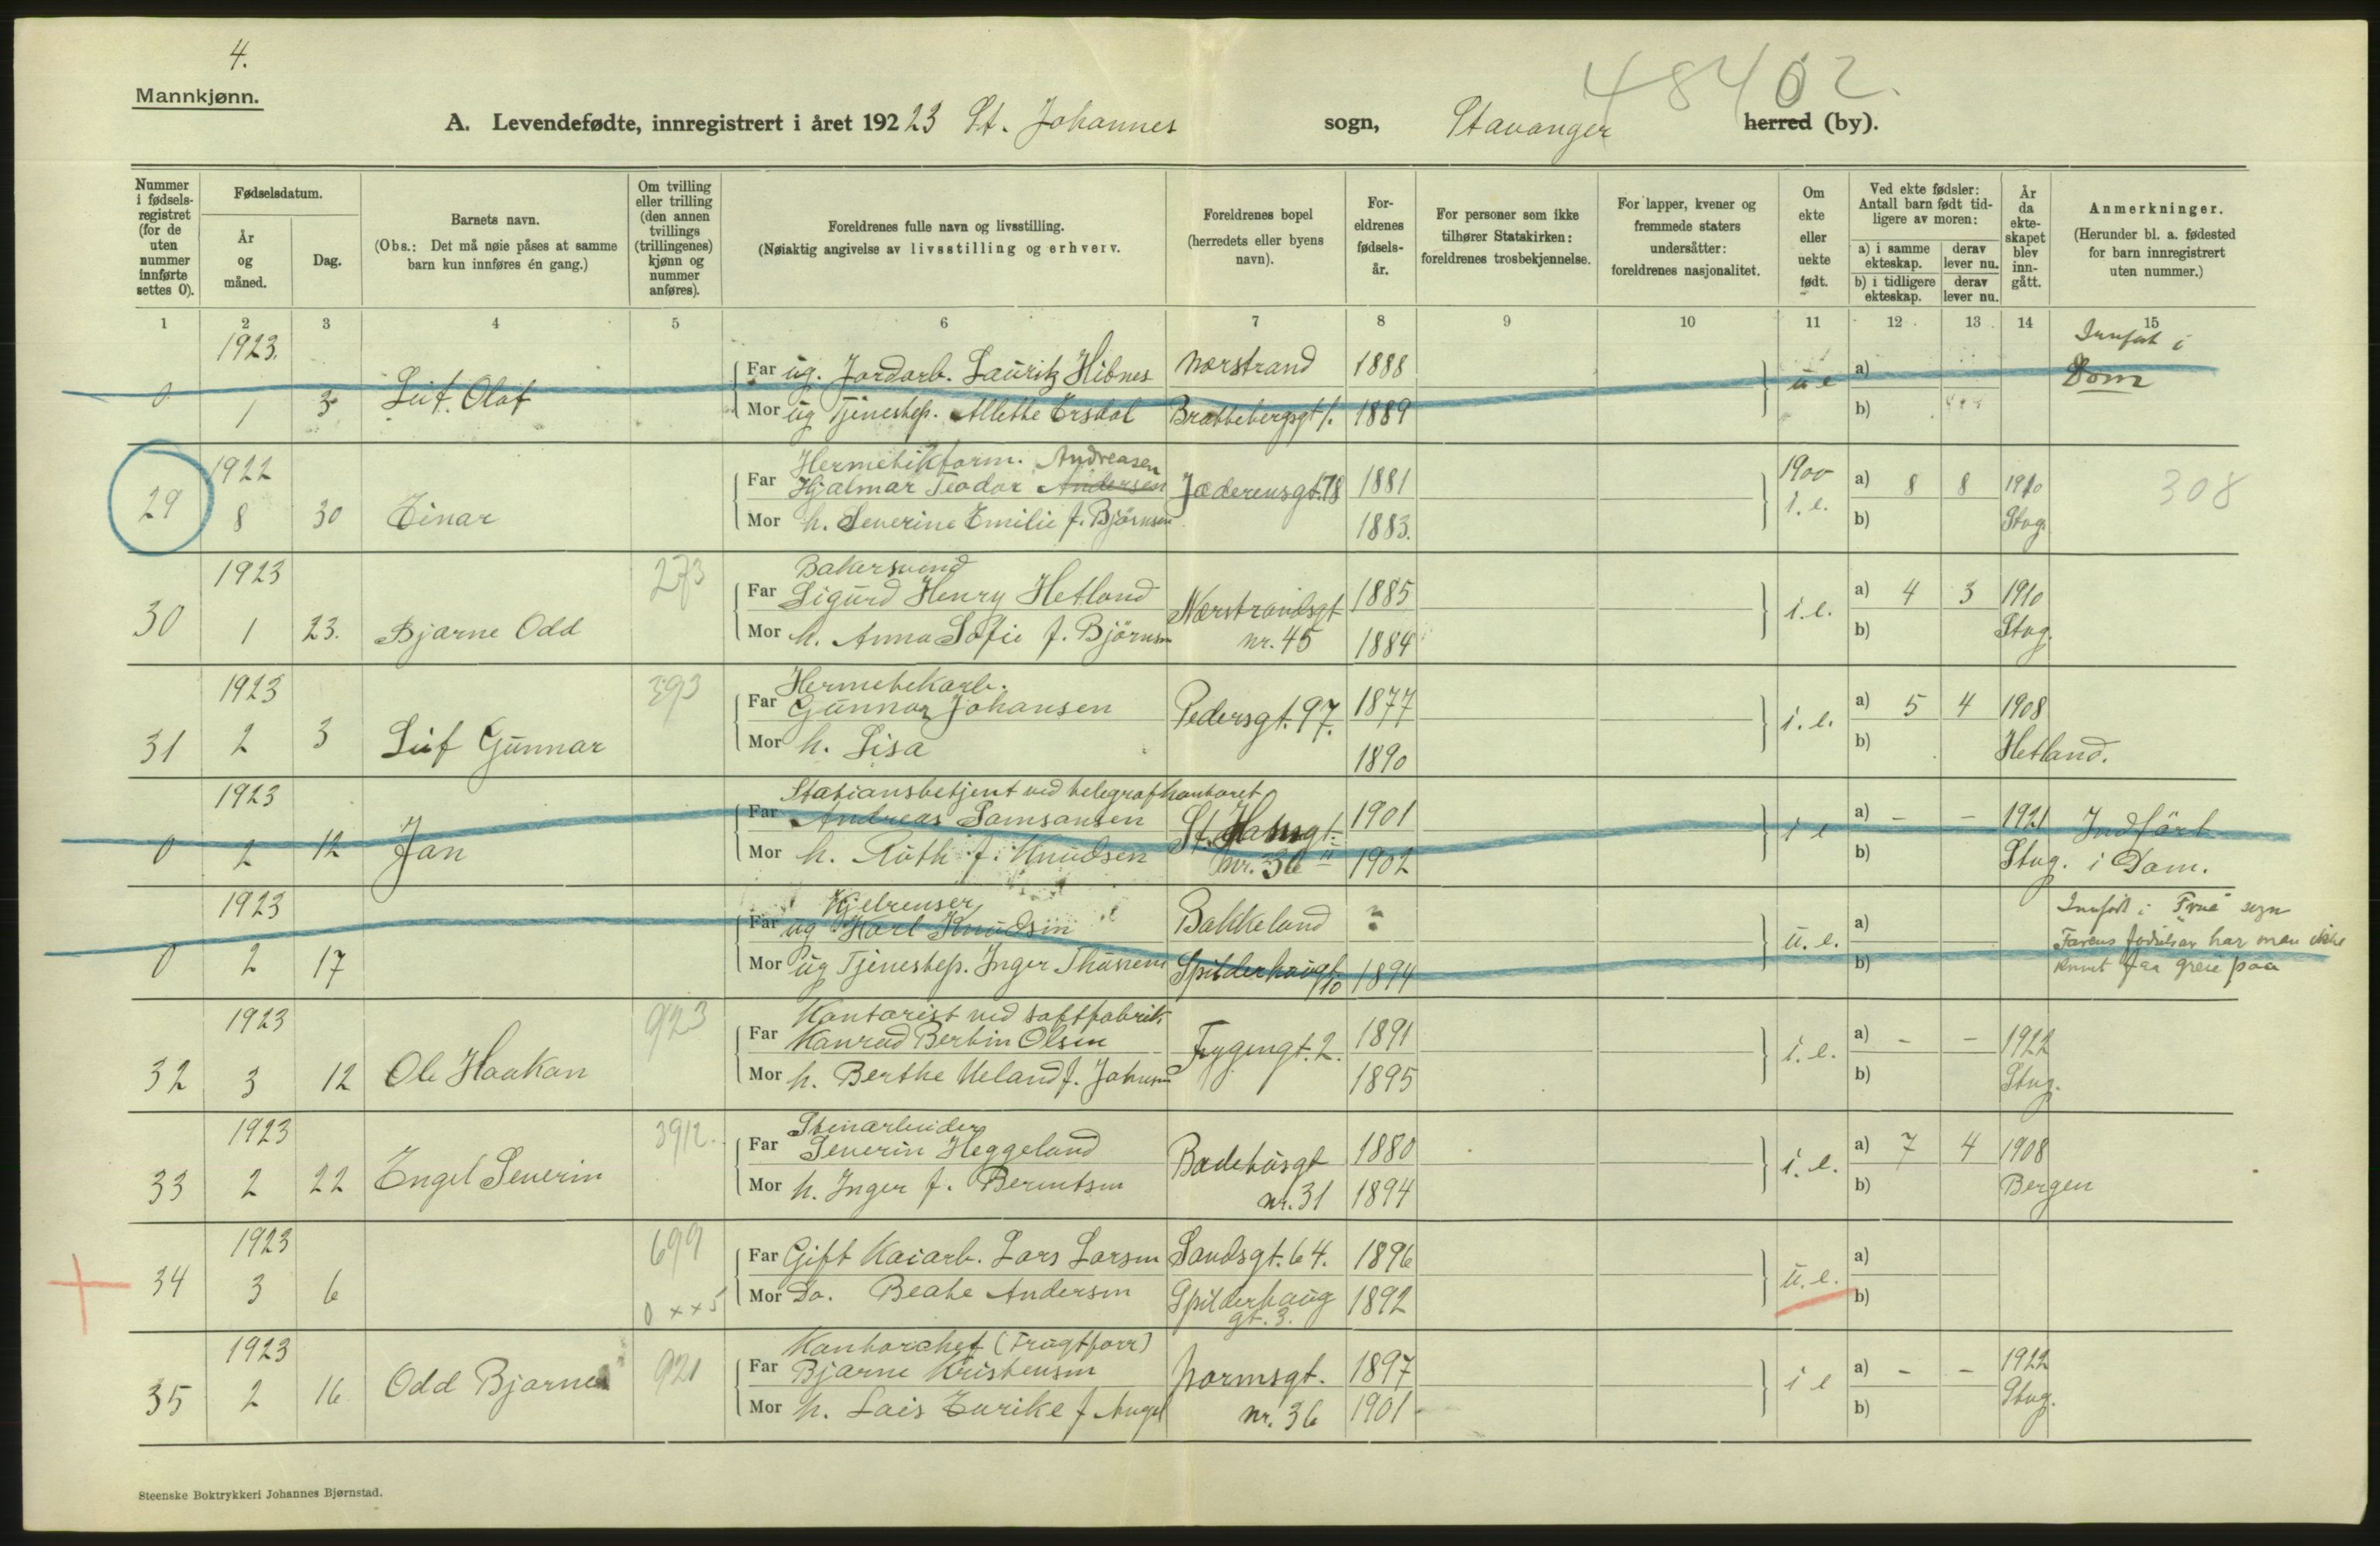 4.
48402.
Mannkjønn.
A. Levendefødte, innregistrert i året 19223 St. Johannes sogn, Stavanger herred (by).
Nummer i fødsels-registret (for de uten nummer innførte settes 0).
Fødselsdatum.
År og måned.
Dag.
Barnets navn.
(Obs.: Det må nøie påses at samme barn kun innføres én gang.)
Om tvilling eller trilling (den annen tvillings (trillingenes) kjønn og nummer anføres).
Foreldrenes fulle navn og livsstilling.
(Nøiaktig angivelse av livsstilling og erhverv.
Foreldrenes bopel (herredets eller byens navn).
For-eldrenes fødsels-år.
For personer som ikke tilhører Statskirken: foreldrenes trosbekjennelse.
For lapper, kvener og fremmede staters undersåtter: foreldrenes nasjonalitet.
Om ekte eller uekte født.
Ved ekte fødsler: Antall barn født tid-ligere av moren:
a) i samme ekteskap.
derav lever nu.
b) i tidligere ekteskap.
derav lever nu.
År da ekte-skapet blev inn-gått.
Anmerkninger.
(Herunder bl. a. fødested for barn innregistrert uten nummer.)
1 2 3 4 5 6 7 8 9 10 11 12 13 14 15
1923. Innført i
Far ug. Jordarb. Lauritz Hibnes Norstrand 1888 u e a) Dom
0 1 3 Leif Olaf
Mor ug Tjenestep. Allette Ersdal Brattebergsgt 1. 1889 b)
1922 Hermetikform. Andreasen 1900
Far Hjalmar Teodor Andersen Jæderensgt. 78 1881 a) 8 8 1910 308
29 8 30 Einar i. e.
Mor h. Severine Emilie f. Björnsen 1883. b) Stvg.
1923 273 Bakersvend
Far Sigurd Henry Hetland Nærstrandsgt 1885 a) 4 3 1910
30 1 23. Bjarne Odd i.e.
Mor h. Anna Sofie f. Björnsen nr. 45 1884 b) Stvg.
1923 393 Hermetikarb.
Far Gunnar Johansen Pedersgt. 97. 1877 a) 5 4 1908
31 2 3 Leif Gunnar i.e.
Mor h. Lisa 1890 b) Hetland.
1923 Stationsbetjent ved telegrafkontoret
Far Andreas Samsonsen St. Hansgt. 1901 a) - - 1921 Indført
0 2 12 Jan i e
Mor h. Ruth f. Knudsen nr. 36 II 1902 b) Stvg. i Dom.
1923 Kjelrenser Innført i Frue sogn
Far ug Karl Knudsen Bakkeland ? a) Farens fødselsaar har man ikke
0 2 17 u. e.
Mor ug Tjenestep. Inger Spilderhaugt. 10 1894 b) kunet faa greie paa
1923 923 Kontorist ved saftfabrik
Far Konrad Bertin Olsen Frygengt. 2. 1891 a) - - 1922
32 3 12 Ole Haakon i.e.
Mor h. Berthe Ueland f. Johnsen 1895 b) Stvg.
1923 3912. Stenarbeider
Far Severin Heggeland Badehusgt 1880 a) 7 4 1908
33 2 22 Engel Severin i.e.
Mor h. Inger f. Berentsen nr. 31 1894 b) Bergen
1923 699
Far Gift Kaiarb. Lars Larsen Sandsgt. 64. 1896 a)
34 3 6 u.e.
0 x x 5 Mor Do. Beate Andersen Spilderhaug gt. 3. 1892 b)
1923 Kontorchef (Frugtforr)
921 Far Bjarne Kristensen Normsgt. 1897 a) - - 1922
35 2 16 Odd Bjarne i e
Mor h. Lais Enrike f nr. 36 1901 b) Stvg.
Steenske Boktrykkeri Johannes Bjørnstad.